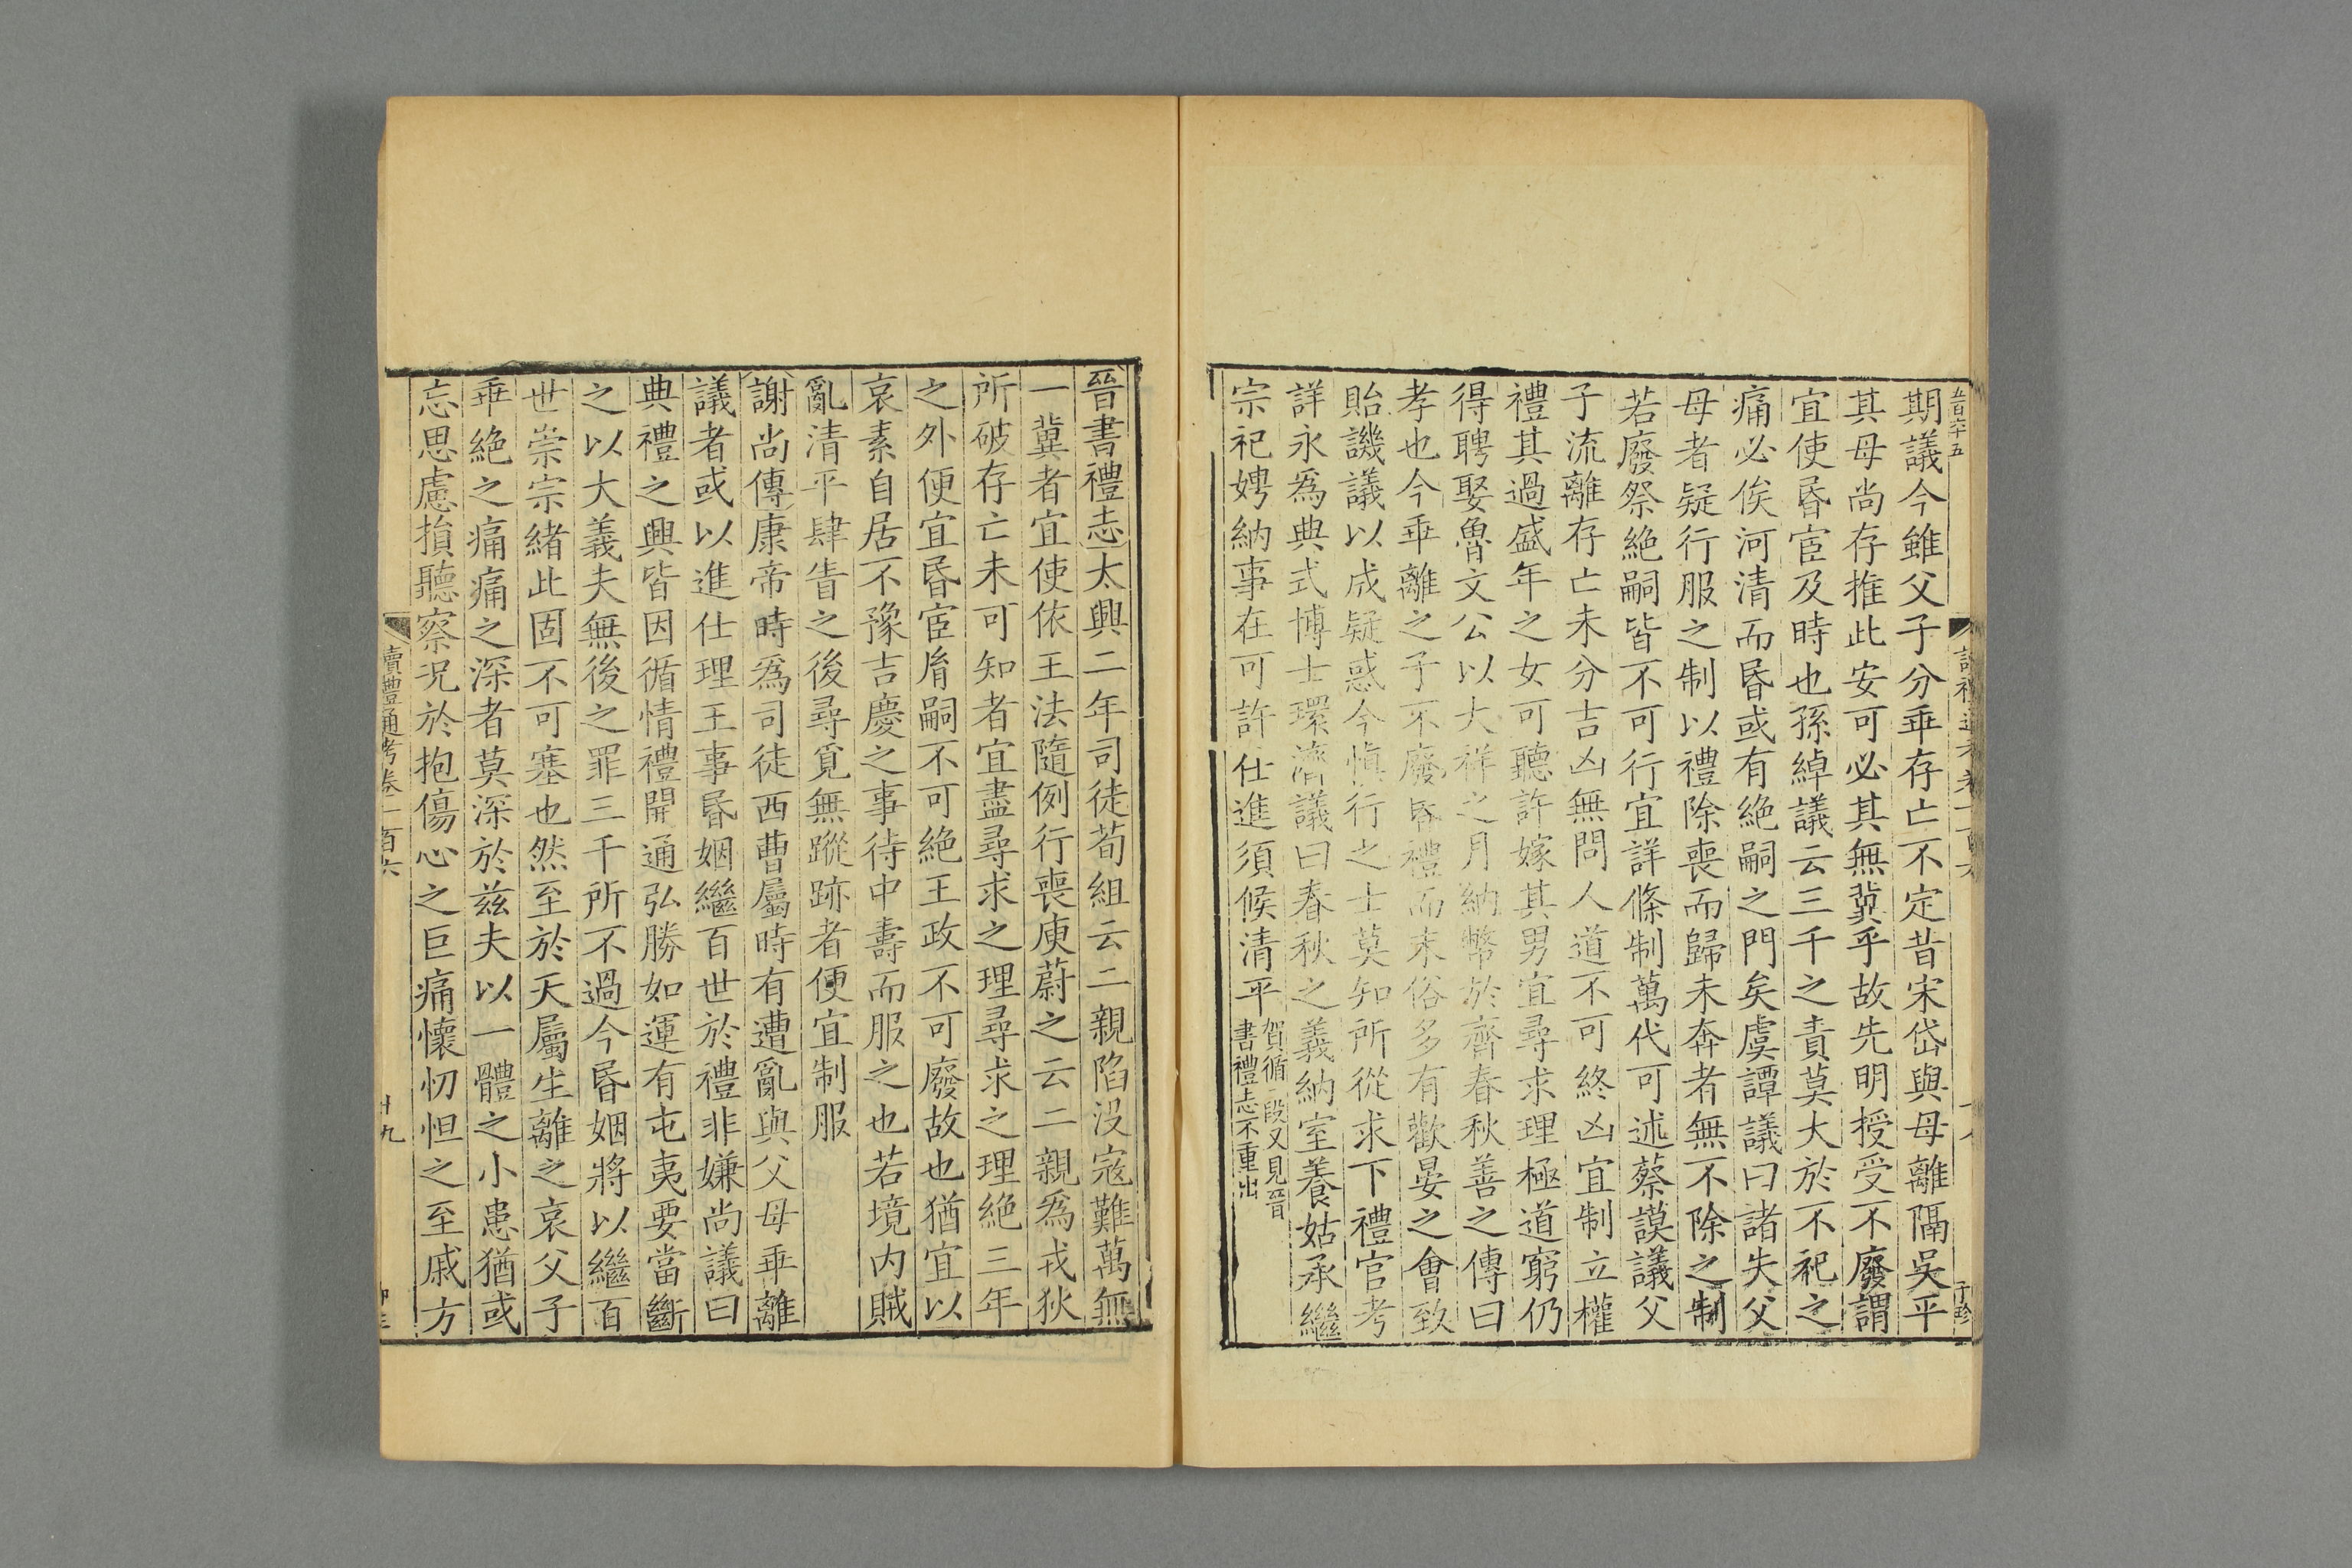 五百六十五
期議今雖父子分乖存亡不定昔宋岱與母離隔吳平
其母尚存推此安可必其無冀乎故先明授受不廢謂
宜使昏宦及時也孫綽議云三千之責莫大於不祀之
痛必俟河清而昏或有絶嗣之門矣虞譚議曰諸失父
母者疑行服之制以禮除喪而歸未奔者無不除之制
若廢祭絶嗣皆不可行宜詳條制萬代可述蔡謨議父
子流離存亡未分吉凶無問人道不可終凶宜制立權
禮其過盛年之女可聽許嫁其男宜尋求理極道窮仍
得聘娶魯文公以大祥之月納幣於齊春秋善之傳曰
孝也今乖離之子不廢昏禮而末俗多有歡晏之會致
貽譏議以成疑惑今愼行之士莫知所從求下禮官考
詳永爲典式博士環濟議曰春秋之義納室養姑承繼
宗祀娉納事在可許仕進須候清平賀循一段又見晉
書禮志不重出
晉書禮志太興二年司徒荀組云二親陷没寇難萬無
一冀者宜使依王法隨例行喪庾蔚之云二親爲戎狄
所破存亡未可知者宜盡尋求之理尋求之理絶三年
之外便宜昏宦胤嗣不可絶王政不可廢故也猶宜以
哀素自居不豫吉慶之事待中壽而服之也若境内賊
亂清平肆眚之後尋覓無蹤跡者便宜制服
謝尚傳康帝時爲司徒西曹屬時有遭亂與父母乖離
議者或以進仕理王事昏姻繼百世於禮非嫌尚議曰
典禮之興皆因循情禮開通弘勝如運有屯夷要當斷
之以大義夫無後之罪三千所不過今昏姻將以繼百
世崇宗緒此固不可塞也然至於天屬生離之哀父子
乖絶之痛痛之深者莫深於兹夫以一體之小患猶或
忘思慮損聽察况於抱傷心之巨痛懷忉怛之至戚方
讀禮通考卷一百六
廿九